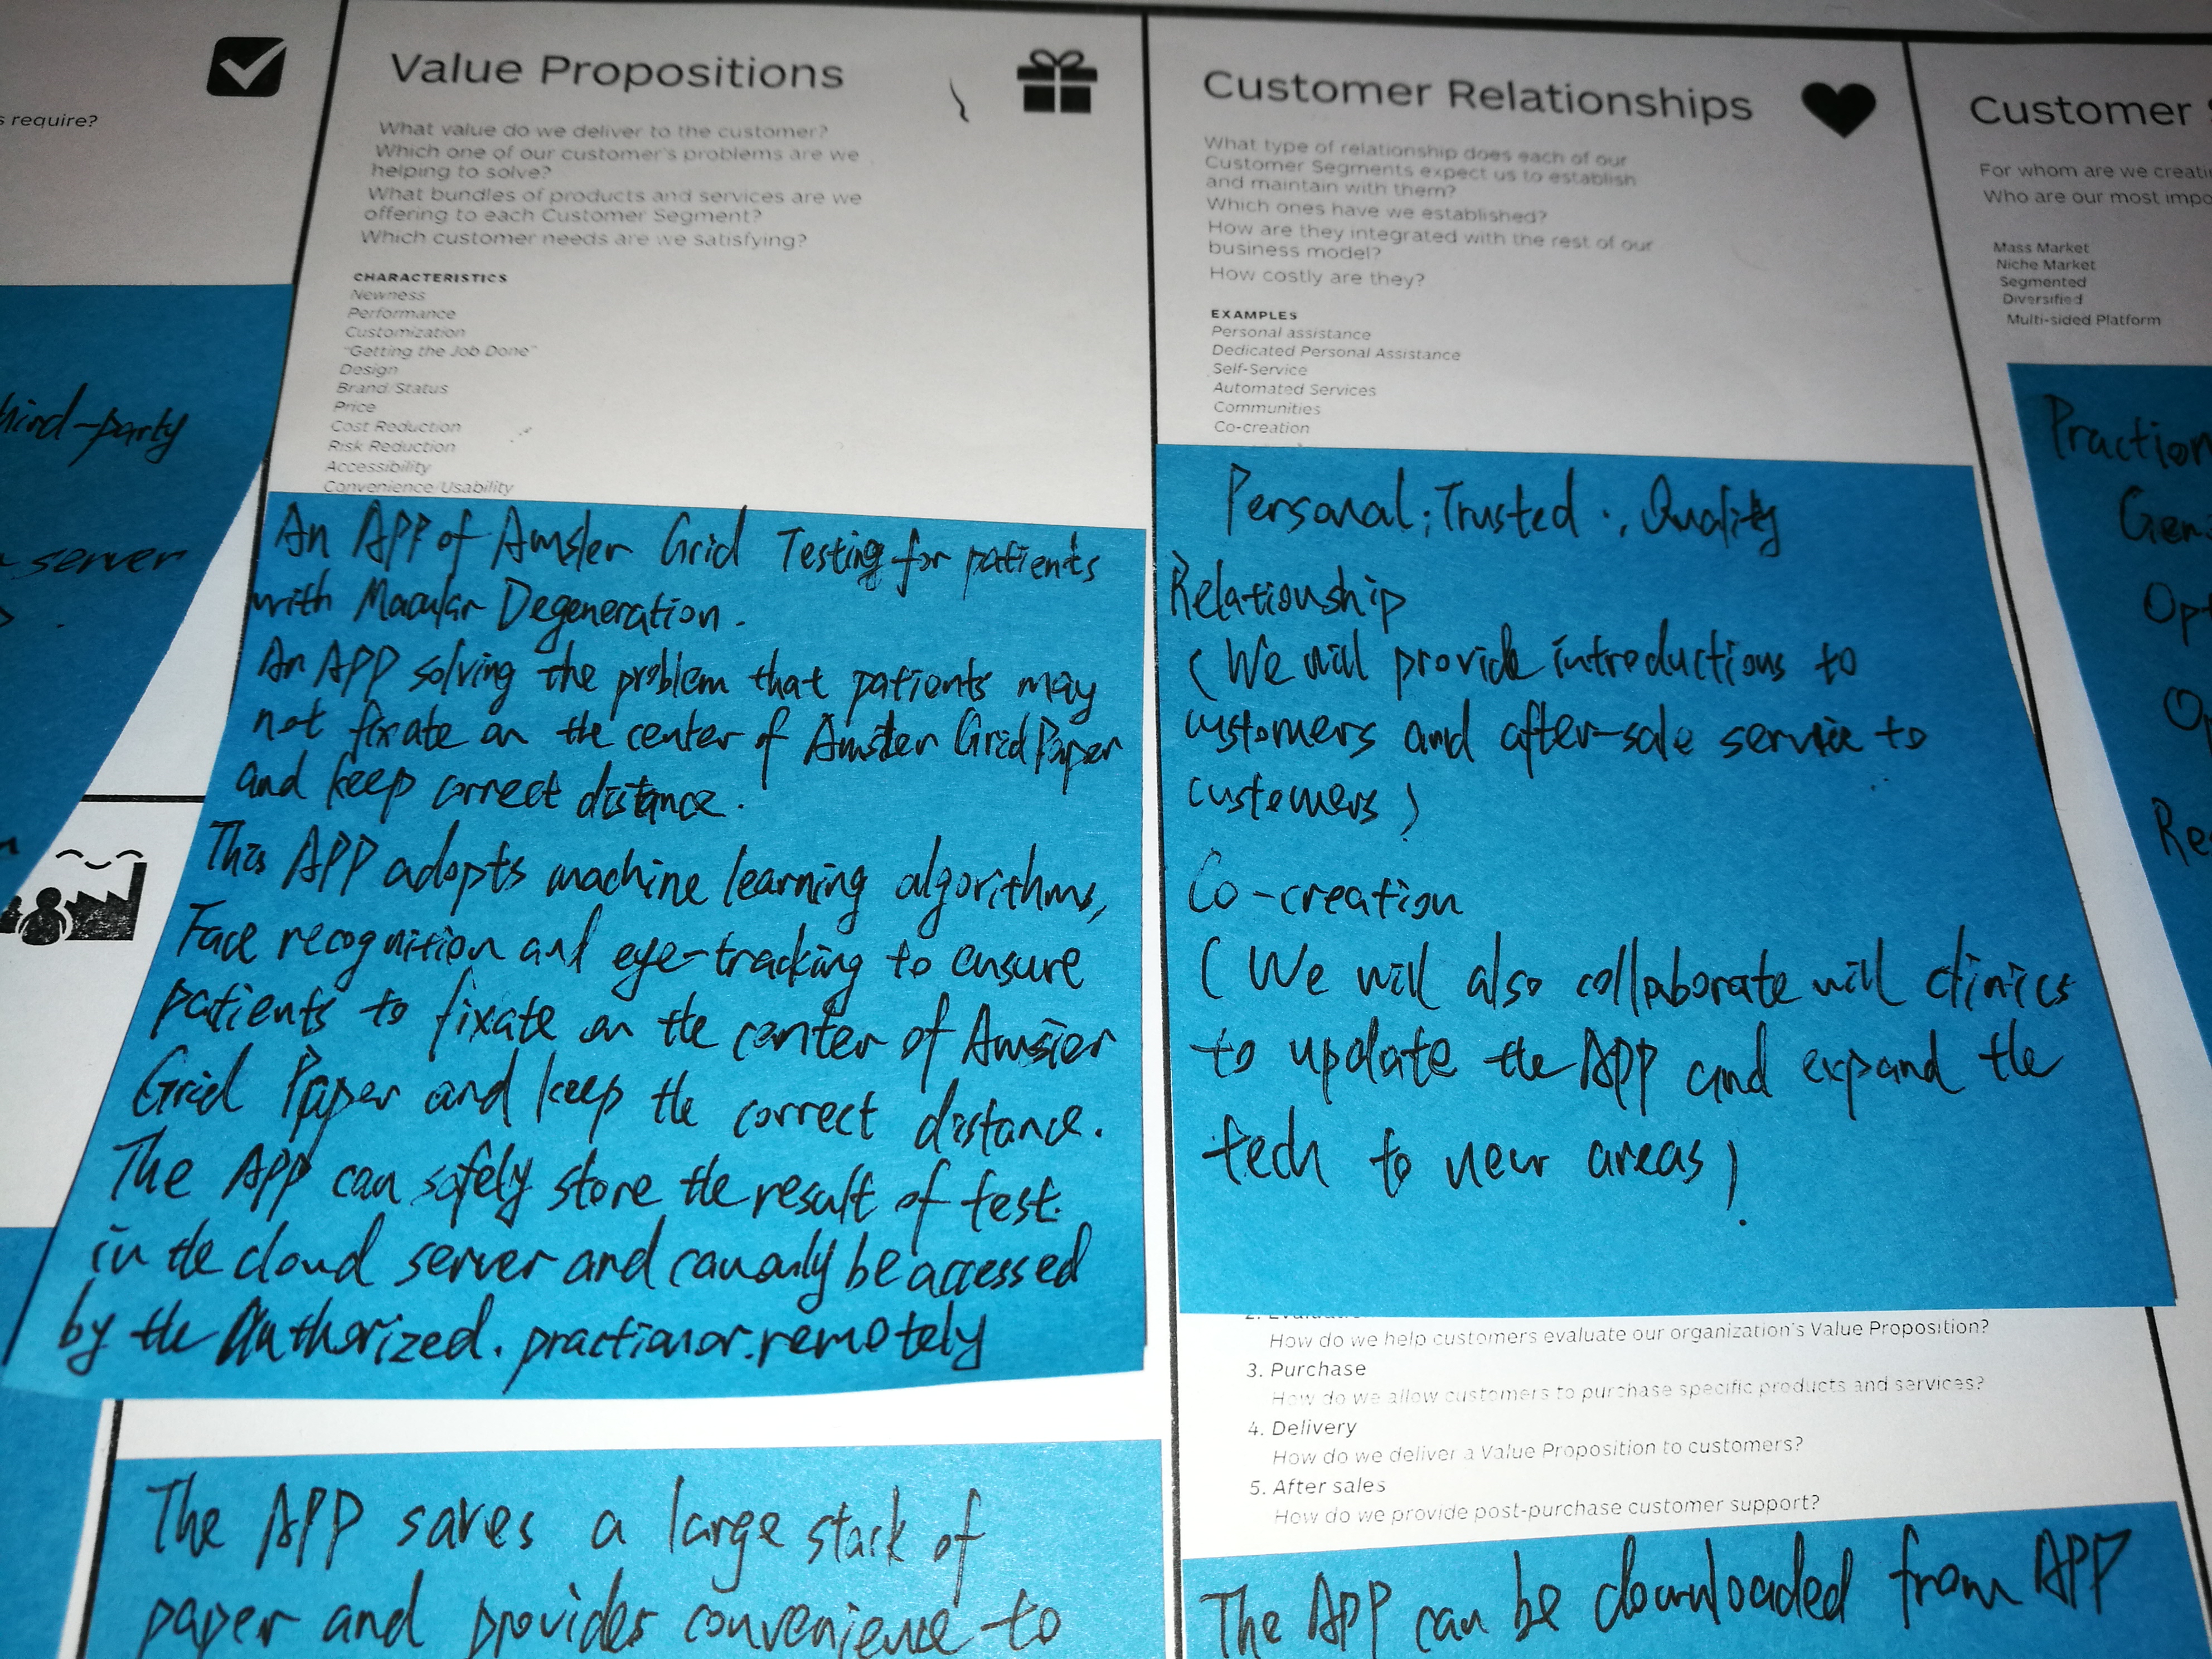 s require?
hird-party
server
Value Propositions
What value do we deliver to the customer?
Which one of our customer's problems are we
helping to solve?
What bundles of products and services are we
offering to each Customer Segment?
Which customer needs are we satisfying?
CHARACTERISTICS
Newness
Performance
Customization
"Getting the Job Done"
Design
Brand/Status
Price
Cost Reduction
Risk Reduction
Accessibility
Convenience/Usability
An APP of Amsler Grid Testing for patients
with Macular Degeneration.
An APP solving the problem that patients may
not fixate on the center of Amsler Grid Paper
and keep correct distance.
This APP adopts machine learning algorithms,
Face recognition and eye-tracking to ensure
patients to fixate on the center of Amsler
Grid Paper and keep the correct distance.
The APP can safely store the result of test.
in the cloud server and can only be accessed
by the Authorized. practianor. remotely
The APP saves a large stack of
paper and provides convenience to
Customer Relationships
What type of relationship does each of our
Customer Segments expect us to establish
and maintain with them?
Which ones have we established?
How are they integrated with the rest of our
business model?
How costly are they?
EXAMPLES
Personal assistance
Dedicated Personal Assistance
Self-Service
Automated Services
Communities
Co-creation
Personal; Trusted ., Quality
Relationship
(We will provide introductions to
customers and after-sale service to
customers)
Co-creation
(We will also collaborate will clinics
to update the APP and expand the
tech to new areas)
How do we help customers evaluate our organization's Value Proposition?
3. Purchase
How do we allow customers to purchase specific products and services?
4. Delivery
How do we deliver a Value Proposition to customers?
5. After sales
How do we provide post-purchase customer support?
The APP can be downloaded from APP
Customer
For whom are we creati
Who are our most impo
Mass Market
Niche Market
Segmented
Diversified
Multi-sided Platform
Praction
Gen
Op
Re